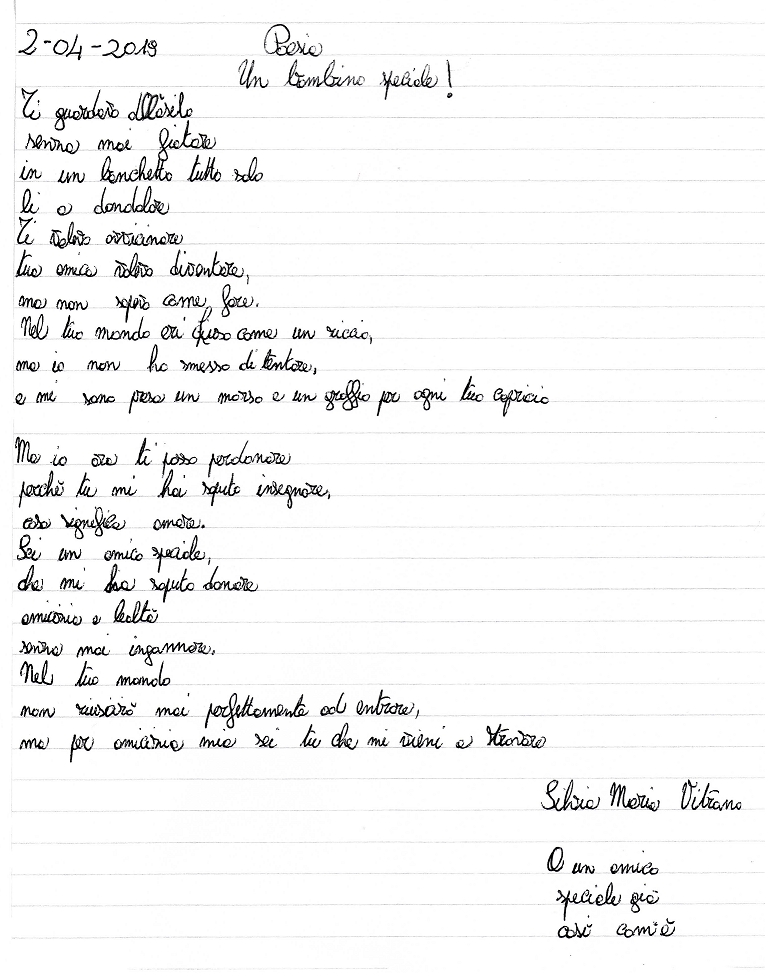 2-04-2019
Poesia
Un bambino speciale!
Ti guardavo all'asilo
senza mai fiatare
in un banchetto tutto solo
li a dondolare
Ti volevo avvicinare
tua amica volevo diventare,
ma non sapevo come fare.
Nel tuo mondo eri chiuso come un riccio,
ma io non ho smesso di tentare,
e mi sono presa un morso e un graffio per ogni tuo capricio
Ma io ora ti posso perdonare
perchè tu mi hai saputo insegnare,
cosa significa amare.
Sei un amico speciale,
che mi ha saputo donare
amicizia e lealtà
senza mai ingannare.
Nel tuo mondo
non riuscirò mai perfettamente ad entrare,
ma per amicizia mia sei tu che mi vieni a trovare
Silvia Maria Vitrano
O un amico
speciale già
così com'è